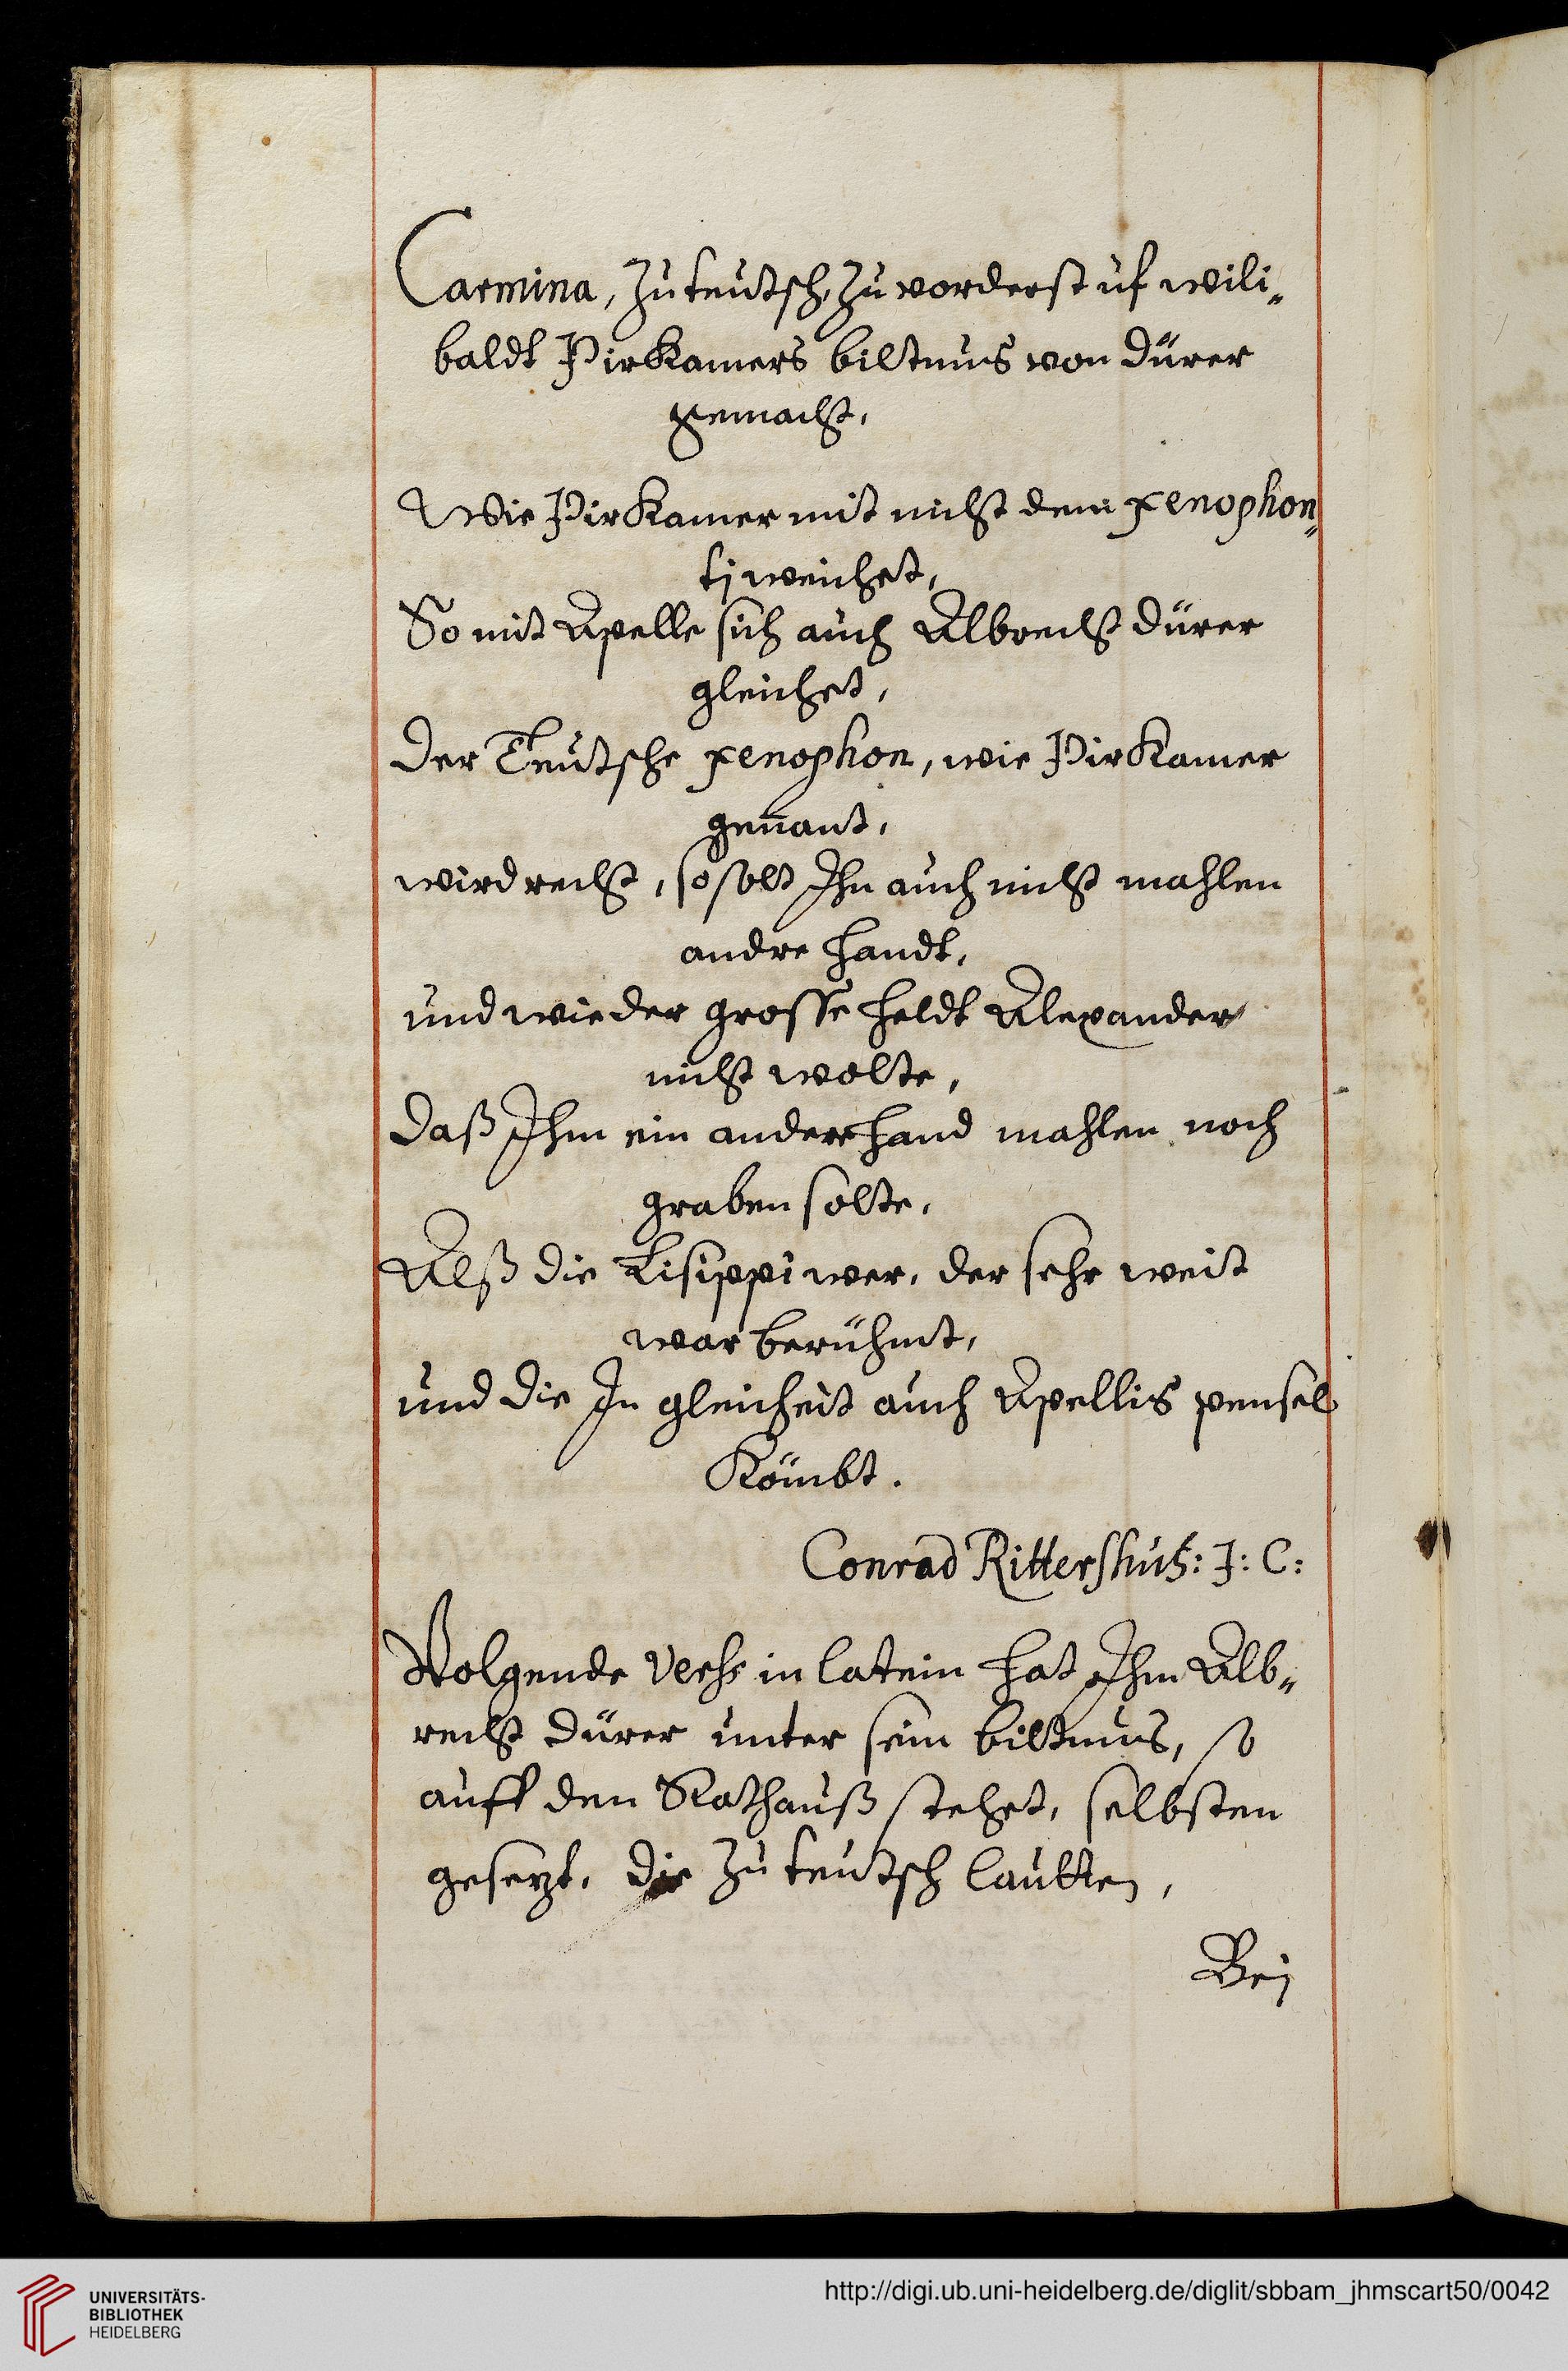 Carmina, Zu teutsch, Zu vorderst uf Wili„
baldt Pirkamers biltnus von Dürer
gemacht,
Wie Pirkamer mit nicht dem xenophon„
tj weichet,
So mit Apelle sich auch Albrecht Dürer
gleichet,
Der Teutsche xenophon, wie Pirkamer
genant,
wird recht, so solt Ihn auch nicht mahlen
andre handt,
und wie der grosse heldt Alexander
nicht wolte,
Daß Ihm einander hand mahlen noch
graben solte,
Alß die Lisippi wer, der sehr weit
war berühmt,
und die In gleicheit auch Apellis pensel
Kömbt.
Conrad Rittershuß: J: C:
Volgende Verß in latein hat Ihm Alb„
recht Dürer unter sein biltnus, so
auff den Rathauß stehet, selbsten
gesezt, die Zu teutsch lautten,
Bej
UNIVERSITÄTS-
BIBLIOTHEK
HEIDELBERG
http://digi.ub.uni-heidelberg.de/diglit/sbbam_jhmscart50/0042